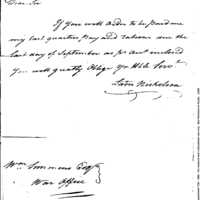 Dear Sir
If you will order to be paid me
my last quarters Pay and rations
last day of September as pr acct enclosed
You will greatly Oblige Yr Hble Servt
Saml Nicholson
Wm Simmons Esqr
War Office